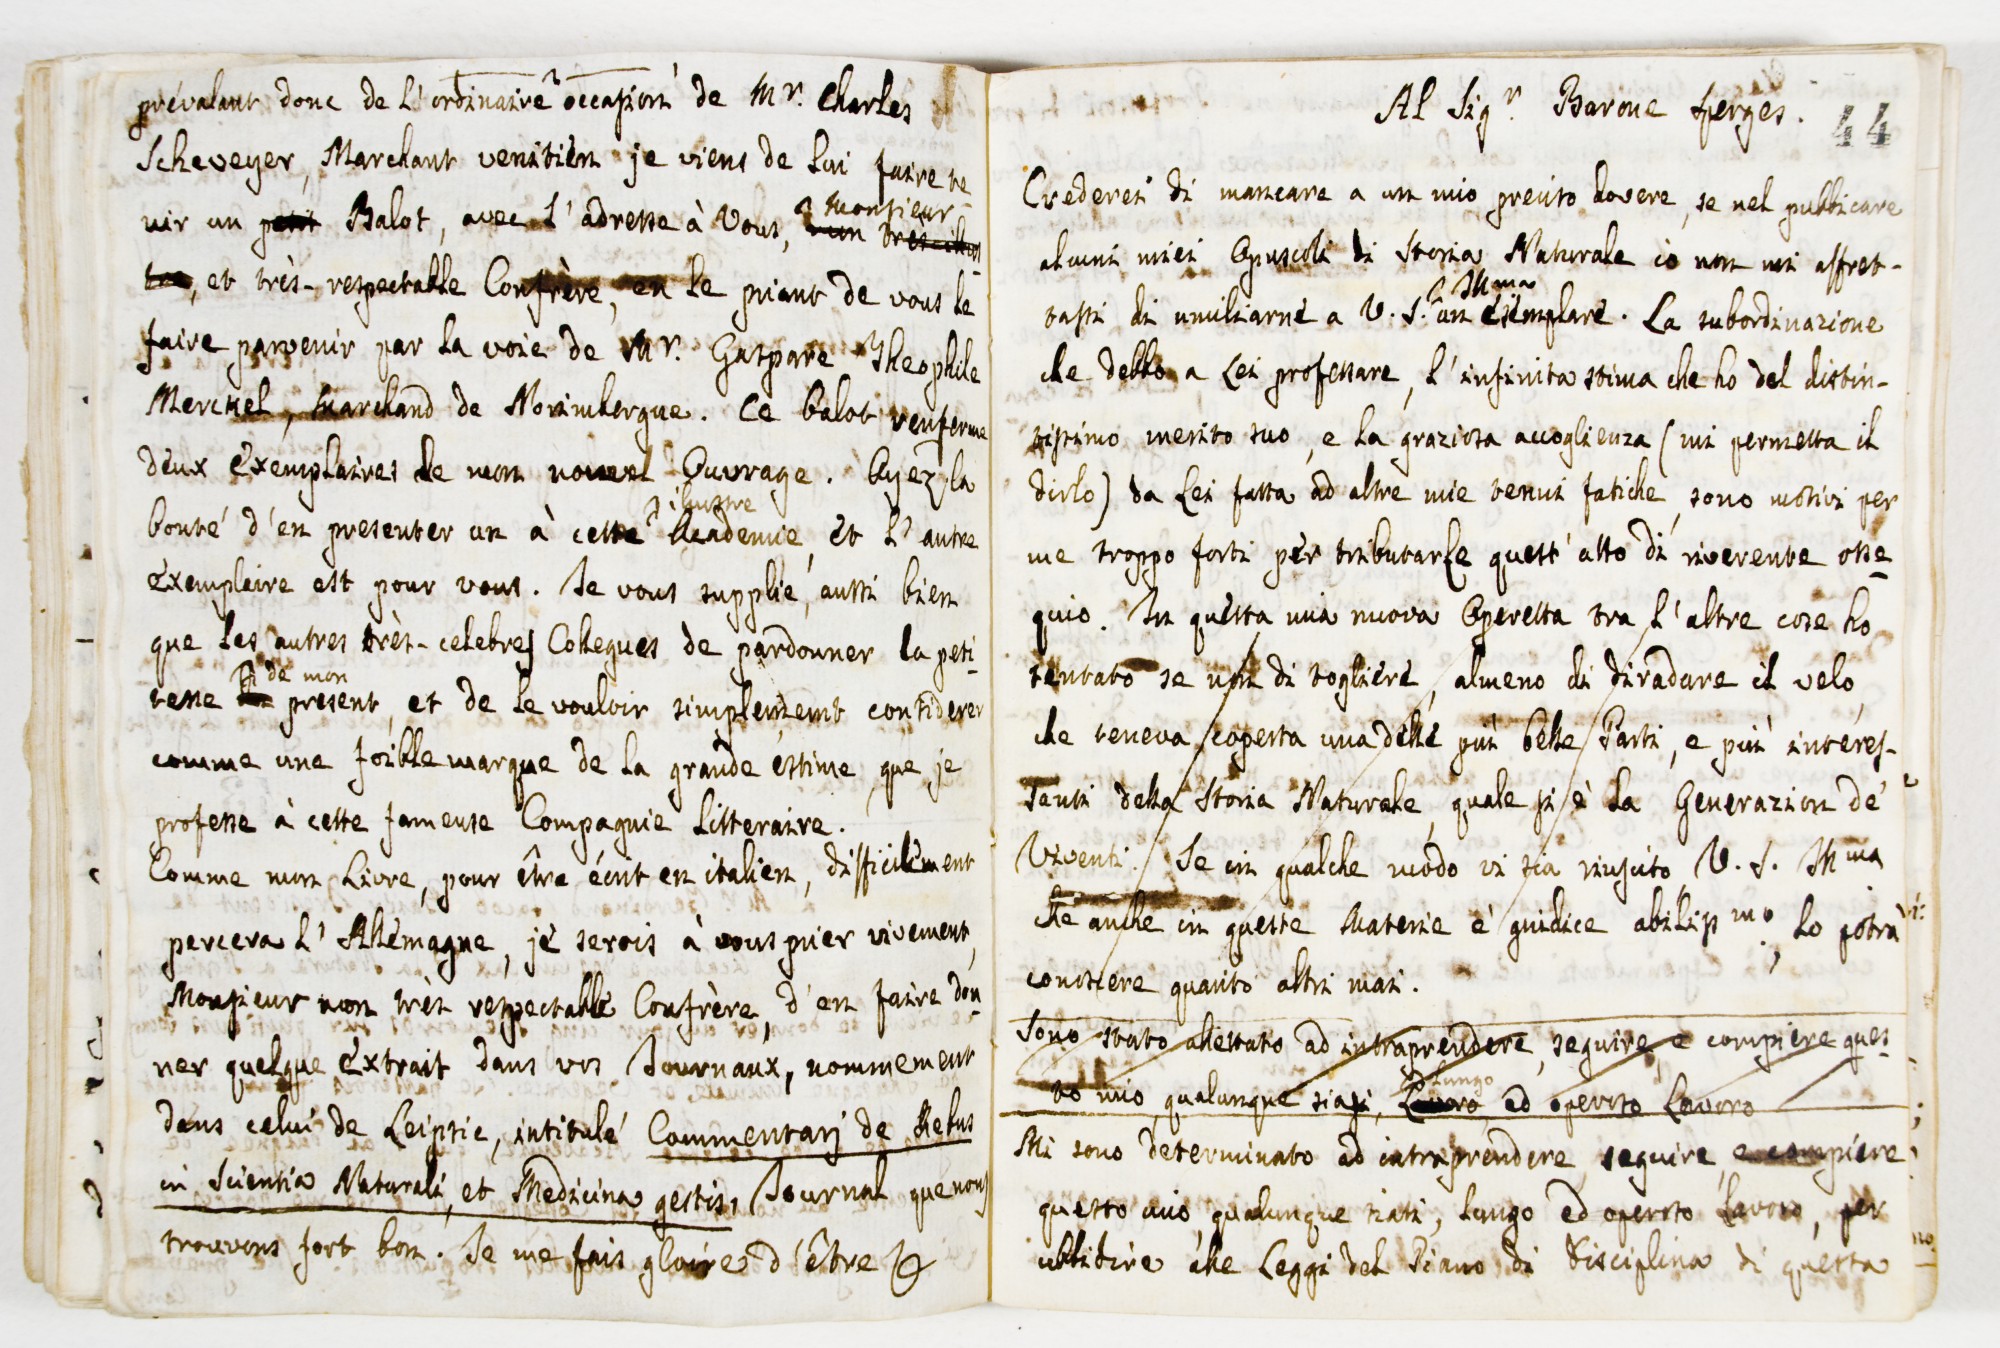 prévalant donc de l'ordinaire occasion de Mr. Charles
Scheveyer, Marchant venitien je viens de lui faire te
nir un petit Balot, avec l'adresse à Vous, Monsieur
mon très-illus
tre, et très-respectable Confrère, en le priant de vous le
faire parvenir par la voie de Mr. Gaspare Theophile
Merckel, marchand de Norimbergue. Ce balot renferme
deux exemplaires de mon nouvel Ouvrage. Ayez la
bonté d'en presenter un à cette illustre Academie, et l'autre
exemplaire est pour vous. Je vous supplie, aussi bien
que les autres très-celebres Collegues de pardonner la peti
tesse de mon present, et de le vouloir simplement considerer
comme une foible marque de la grande estime, que je
professe à cette fameuse Compagnie litteraire.
Comme mon Livre, pour être écrit en italien, difficilement
percera l'Allemagne, je serois à vous prier vivement,
Monsieur mon très respectable Confrère, d'en faire don
ner quelque extrait dans vos Journaux, nommement
dans celui de Leipsic, intitulé Commentarj de Rebus
in Scientia Naturali, et Medicina gestis, Journal que nous
trouvons fort bon. Je me fais gloire d'être &
Al Sigr. Barone Sperges.
44
Crederei di mancare a un mio preciso dovere, se nel pubblicare
alcuni miei Opuscoli di Storia Naturale io non mi affret-
tassi di umiliarne a V. S. Illma un esemplare. La subordinazione
che debbo a Lei professare, l'infinita stima che ho del distin-
tissimo merito suo, e la graziosa accoglienza (mi permetta il
dirlo) da Lei fatta ad altre mie tenui fatiche, sono motivi per
me troppo forti per tributarle quest'atto di riverente osse
quio. In questa mia nuova Operetta tra l'altre cose ho
tentato se non di togliere, almeno di diradare il velo,
che teneva coperta una delle più belle Parti, e più interes-
santi della Storia Naturale, quale si è la Generazion de'
Viventi. Se in qualche modo vi sia riuscito V. S. Illma
che anche in queste Materie è giudice abilissmo, lo potrà
conoscere quanto altri mai.
Sono stato allettato ad intraprendere, seguire, e compiere ques
to mio, qualunque siasi, lungo ed operoso Lavoro
Mi sono determinato ad intraprendere, seguire, e compiere
questo mio, qualunque siasi, lungo ed operoso Lavoro, per
ubbidire alle Leggi del Piano di disciplina di questa